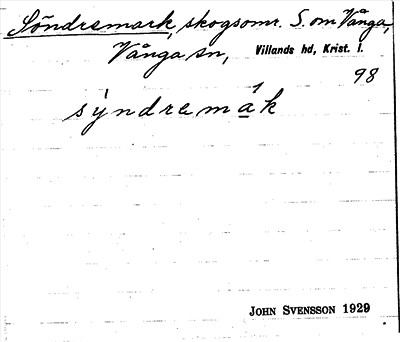 Söndremark, skogsomr. S. om Vånga,
Vånga sn, Villands hd, Krist. l.
98
sỳndremák
JOHN SVENSSON 1929